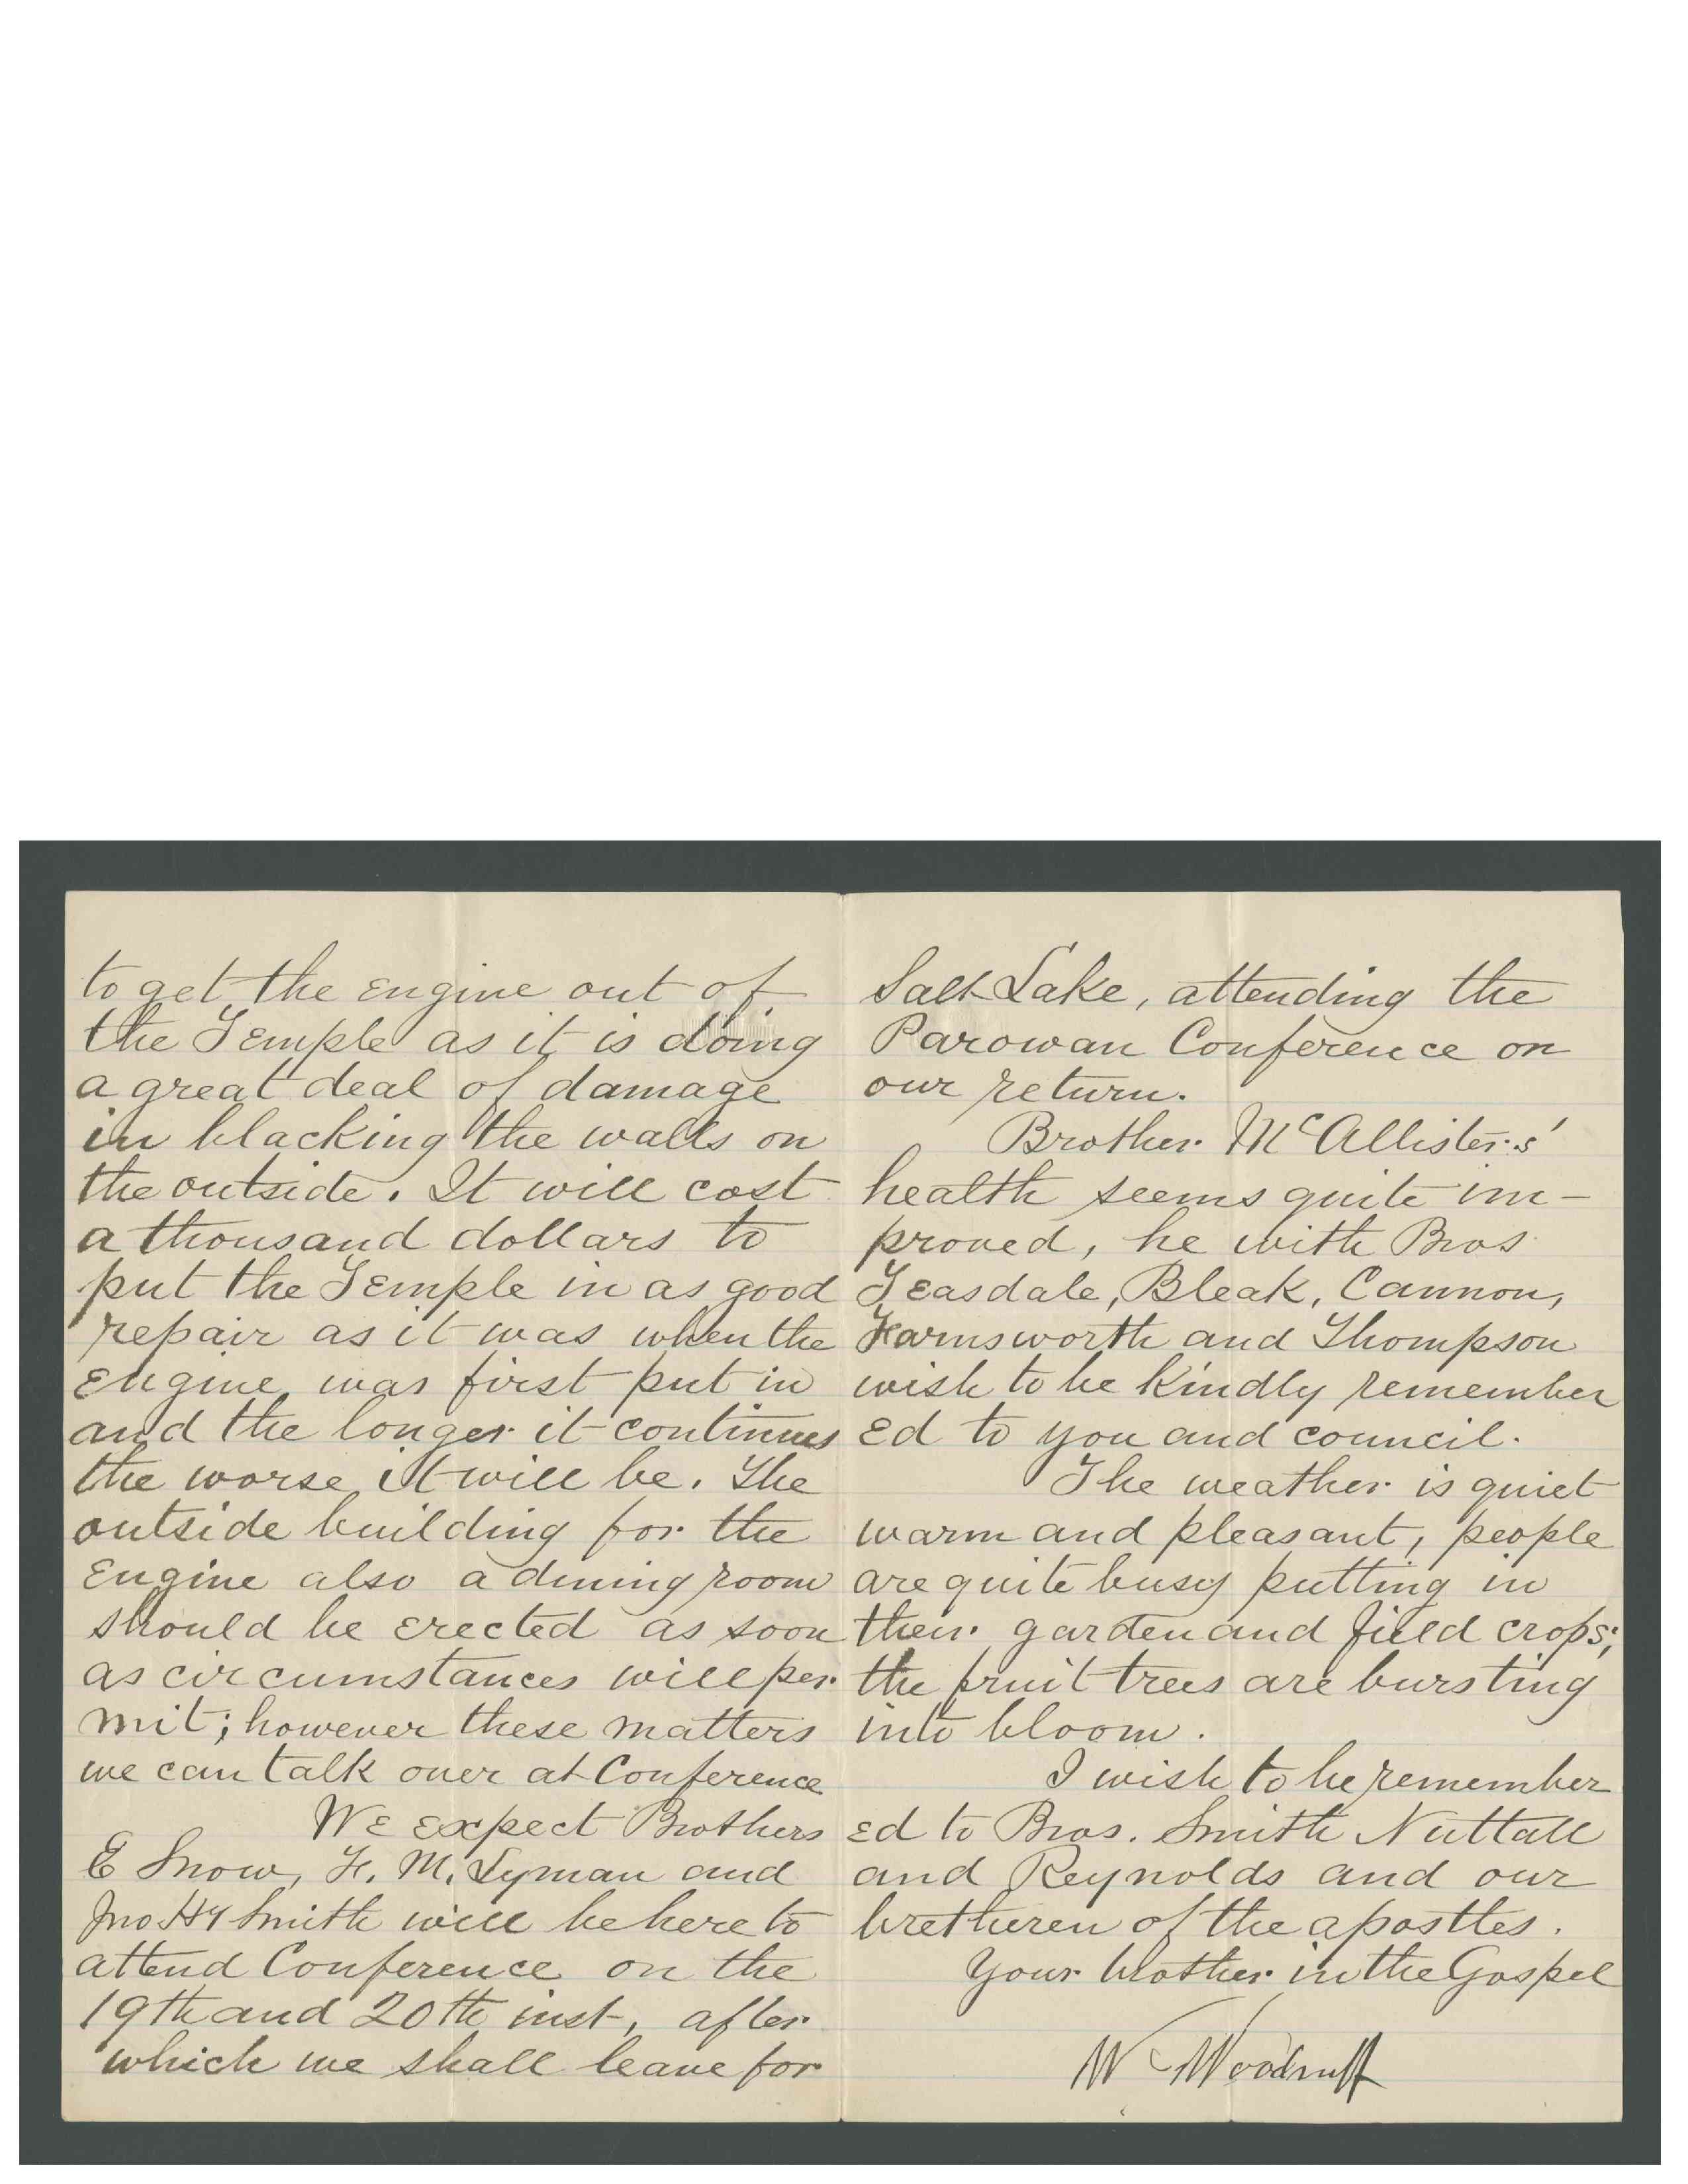 to get the engine out of
the Temple as it is doing
a great deal of damage
in blacking the walls on
the outside. It will cost
a thousand dollars to
put the Temple in as good
repair as it was when the
Engine was first put in
and the longer it continues
the worse it will be. The
outside building for the
Engine also a dining room
should be erected as soon
as circumstances will per
mit; however these matters
we can talk over at Conference
We expect Brothers
E Snow, F. M. Lyman and
Jno Hy Smith will be here to
attend Conference on the
19th and 20th inst, after
which we shall leave for
Salt Lake, attending the
Parowan Conference on
our return.
Brother McAllisters'
health seems quite im-
proved, he with Bros
Teasdale, Bleak, Cannon,
Farnsworth and Thompson
wish to be kindly remember
ed to you and council.
The weather is quiet
warm and pleasant, people
are quite busy putting in
their garden and field crops;
the fruit trees are bursting
into bloom.
I wish to be remember
ed to Bros. Smith Nuttall
and Reynolds and our
bretheren of the apostles.
Your brother in the Gospel
W Woodruff